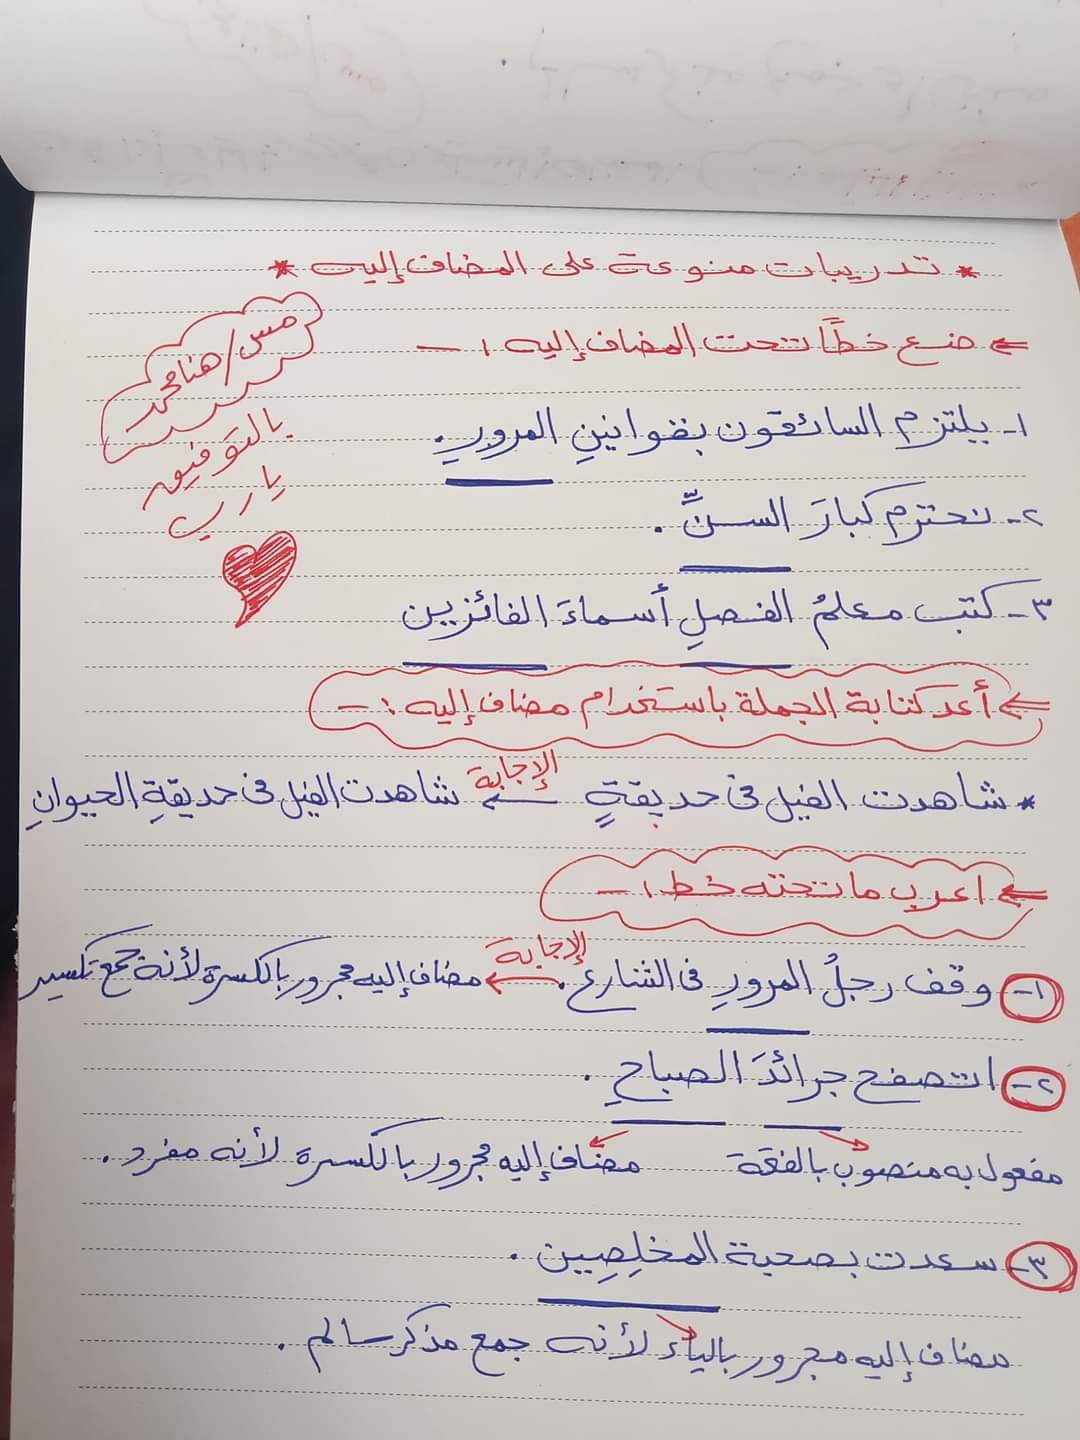 * تدريبات منوعة على المضاف إليه *
ضع خطًّا تحت المضاف إليه :-
مس/هنا محمد
بالتوفيق
يارب
١- يلتزم السائقون بقوانينِ المرورِ.
٢- نحترم كبارَ السنِّ .
٣- كتب معلمُ الفصلِ أسماءَ الفائزين
أعد كتابة الجملة باستخدام مضاف إليه :-
* شاهدت الفيل فى حديقةٍ الإجابة شاهدت الفيل فى حديقةِ الحيوانِ
اعرب ما تحته خط :-
١- وقف رجلُ المرورِ فى الشارع . الإجابة مضاف إليه مجرور بالكسرة لأنه جمع تكسير
٢- اتصفح جرائدَ الصباحِ .
مفعول به منصوب بالفتحة مضاف إليه مجرور بالكسرة لأنه مفرد .
٣- سعدت بصحبة المخلِصِيين .
مضاف إليه مجرور بالياء لأنه جمع مذكر سالم .